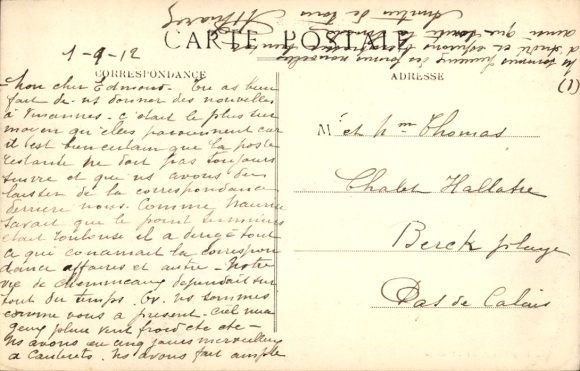 CARTE POSTALE
CORRESPONDANCE
ADRESSE
1-9-12
Mon cher Edmond. Tu as bien
fait de ns donner des nouvelles
à Vincennes. c'était le plus sur
moyen qu'elles parviennent car
il est bien certain que la poste
restante ne doit pas toujours
suivre et que ns avons du
laisser de la correspondance
derriere nous. Comme Maurice
savait que le point terminus
était Toulouse il a dirigé tout
ce qui concernait la correspon
dance affaires et autre - Notre
vie de chemineaux dépendait sur
tout du temps. Or. ns sommes
comme vous à présent. Ciel nua
geux pluie vent froid etc etc -
Ns avons eu cinq jours merveilleux
a Cauterets. Ns avons fait ample
(1)
nouvelles
ainsi que toute
Amitiés de tous
M et Mme Thomas
Chalet Hallatre
Berck plage
Pas de Calais